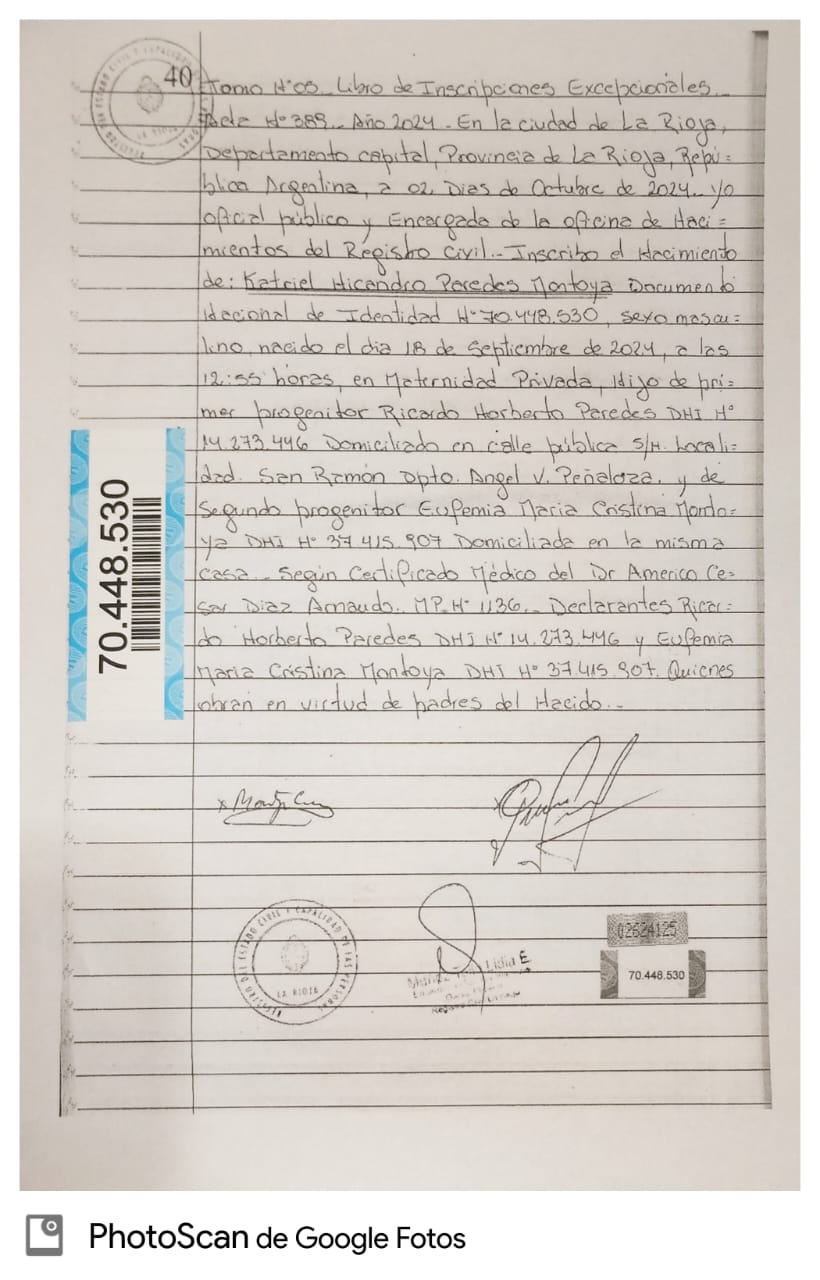 40
Tomo N°05. Libro de Inscripciones Excepcionales.
Acta N° 389.. Año 2024.- En la ciudad de La Rioja,
Departamento capital, Provincia de La Rioja, Repú=
blica Argentina, a 02 Dias de Octubre de 2024. Yo
oficial público y Encargada de la oficina de Naci=
mientos del Registro Civil.- Inscribo el Nacimiento
de: Katriel Nicandro Paredes Montoya Documento
Nacional de Identidad N° 70.448.530, sexo mascu=
lino, nacido el dia 18 de Septiembre de 2024, a las
12:55 horas, en Maternidad Privada, Hijo de pri=
mer progenitor Ricardo Norberto Paredes DNI N°
14.273.446 Domiciliado en calle pública S/N. Locali=
dad. San Ramón Dpto. Angel V. Peñaloza, y de
Segundo progenitor Eufemia Maria Cristina Monto=
ya DNI N° 37.415.907 Domiciliada en la misma
casa.. Según Certificado Médico del Dr Americo Ce=
sar Diaz Arnaudo.. MP. N° 1136.. Declarantes Ricar=
do Norberto Paredes DNI N° 14.273.446 y Eufemia
Maria Cristina Montoya DNI N° 37.415.907. Quienes
obran en virtud de padres del Nacido.-
70.448.530
REGISTRO DEL ESTADO CIVIL Y CAPACIDAD DE LAS PERSONAS
LA RIOJA
Lidia E.
02624125
70.448.530
PhotoScan de Google Fotos